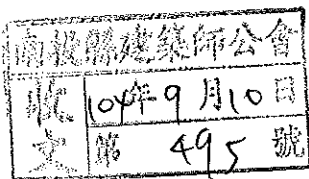 南投縣建築師公會
收文
104年9月10日
第 495 號